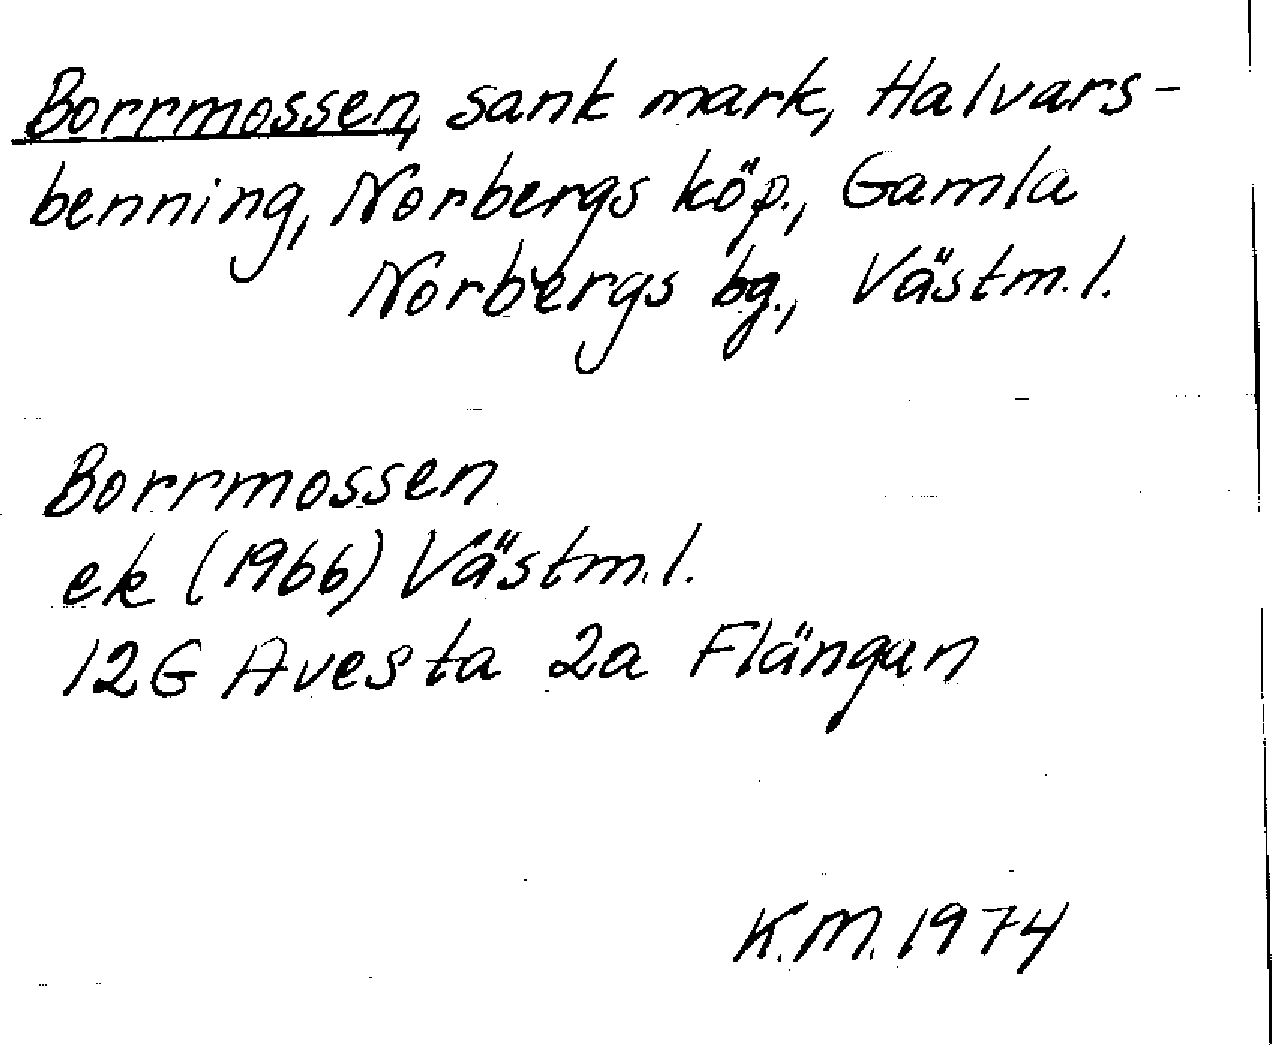 Borrmossen, sank mark, Halvars-
benning, Norbergs köp., Gamla
Norbergs bg., Västm.l.
Borrmossen
ek (1966) Västm.l.
12G Avesta 2a Flängan
K.M. 1974